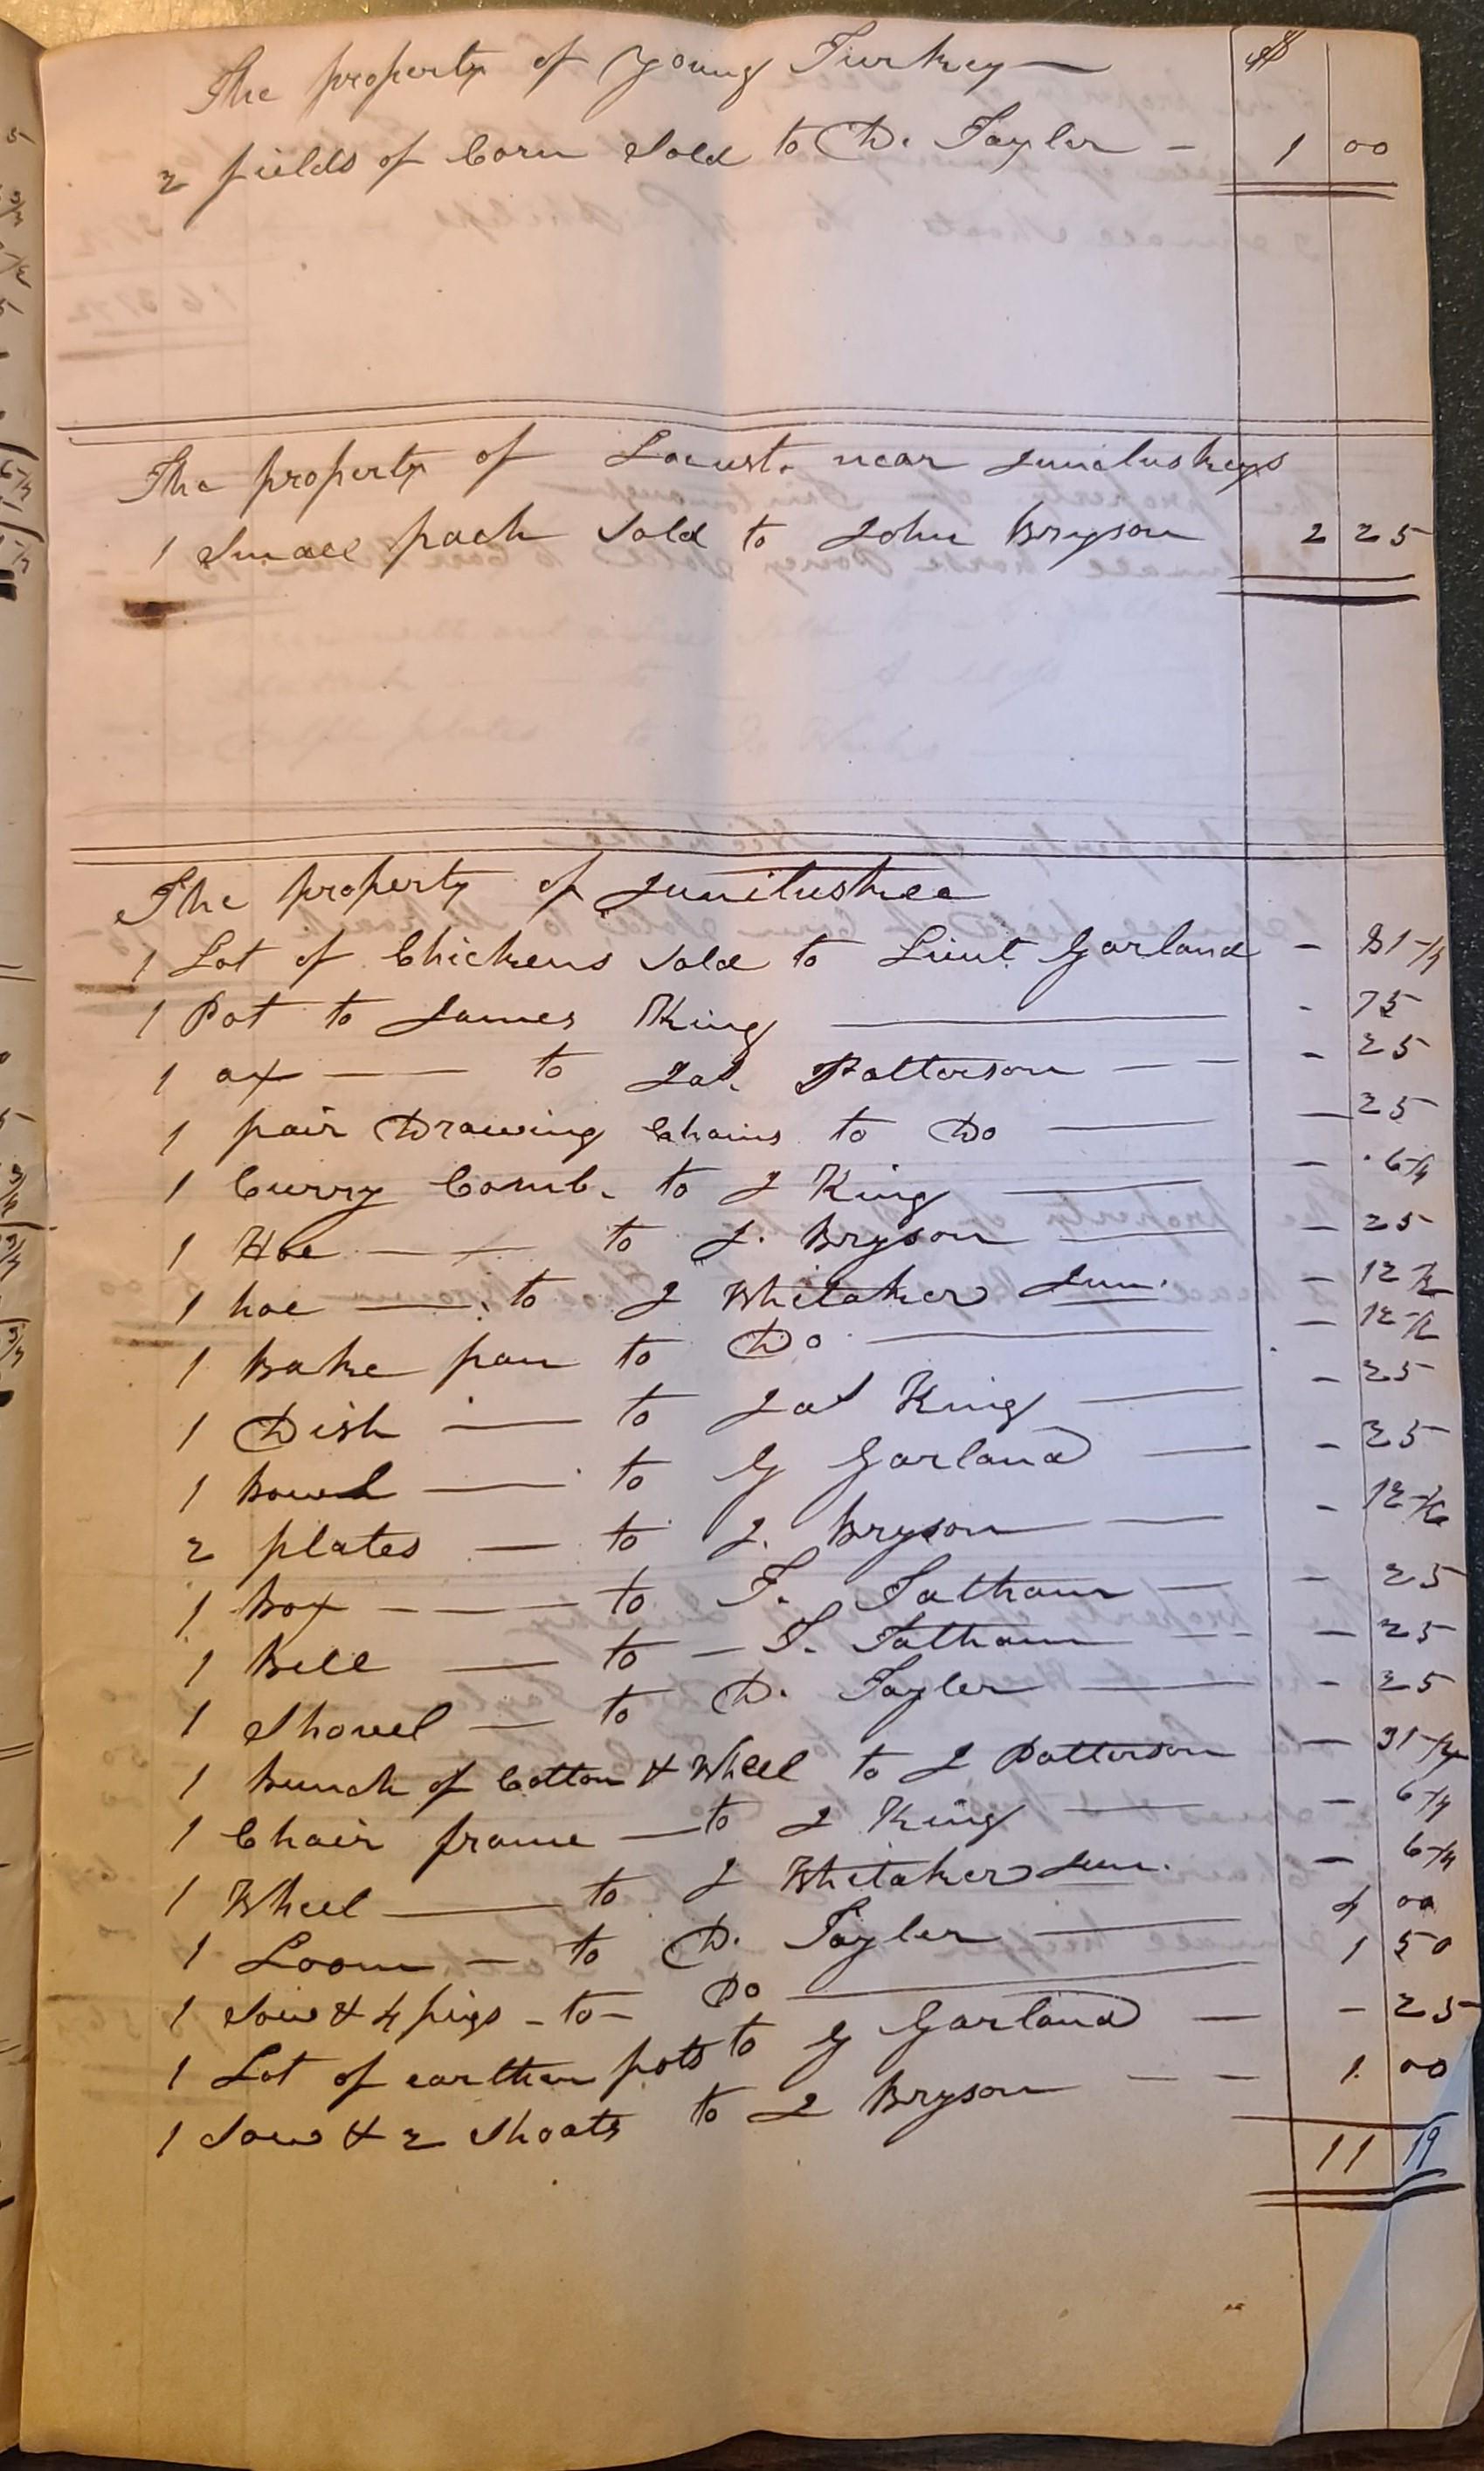 The property of Young Turkey — $
2 fields of Corn Sold to D. Tayler - 1 00
The property of Locust. near Juneluskeys
1 Small pack Sold to John Bryson 2 25
The property of Juniluskee
1 Lot of Chickens Sold to Lieut Garland - 31-1/4
1 Pot to James King — - 75
1 ax — — to Jas. Patterson — — - 25
1 pair Drawing Chains to Do — — 25
1 Curry Comb. to J King — — 6-1/4
1 Hoe — — to J. Bryson — — 25
1 hoe — to J Whitaker Jun. — 12-1/2
1 Bake pan to Do — — 12-1/2
1 Dish — to Jas King — — 25
1 Bowl — to G Garland — - 25
2 plates — to J. Bryson — - 12-1/2
1 Box - — to T. Tatham — - 25
1 Bell — to — T. Tatham — - — 25
1 Shovel — to D. Tayler — - 25
1 Bunch of Cotton & Wheel to J Patterson — 31-1/4
1 Chair frame — to J King — — 6-1/4
1 Wheel — to J Whitaker Jun. — 6-1/4
1 Loom — to D. Tayler — 4 00
1 Sow & 4 pigs - to - Do — 1 50
1 Lot of earthen pots to G Garland — - 25
1 Sow & 2 Shoats to J Bryson — — 1. 00
11 19